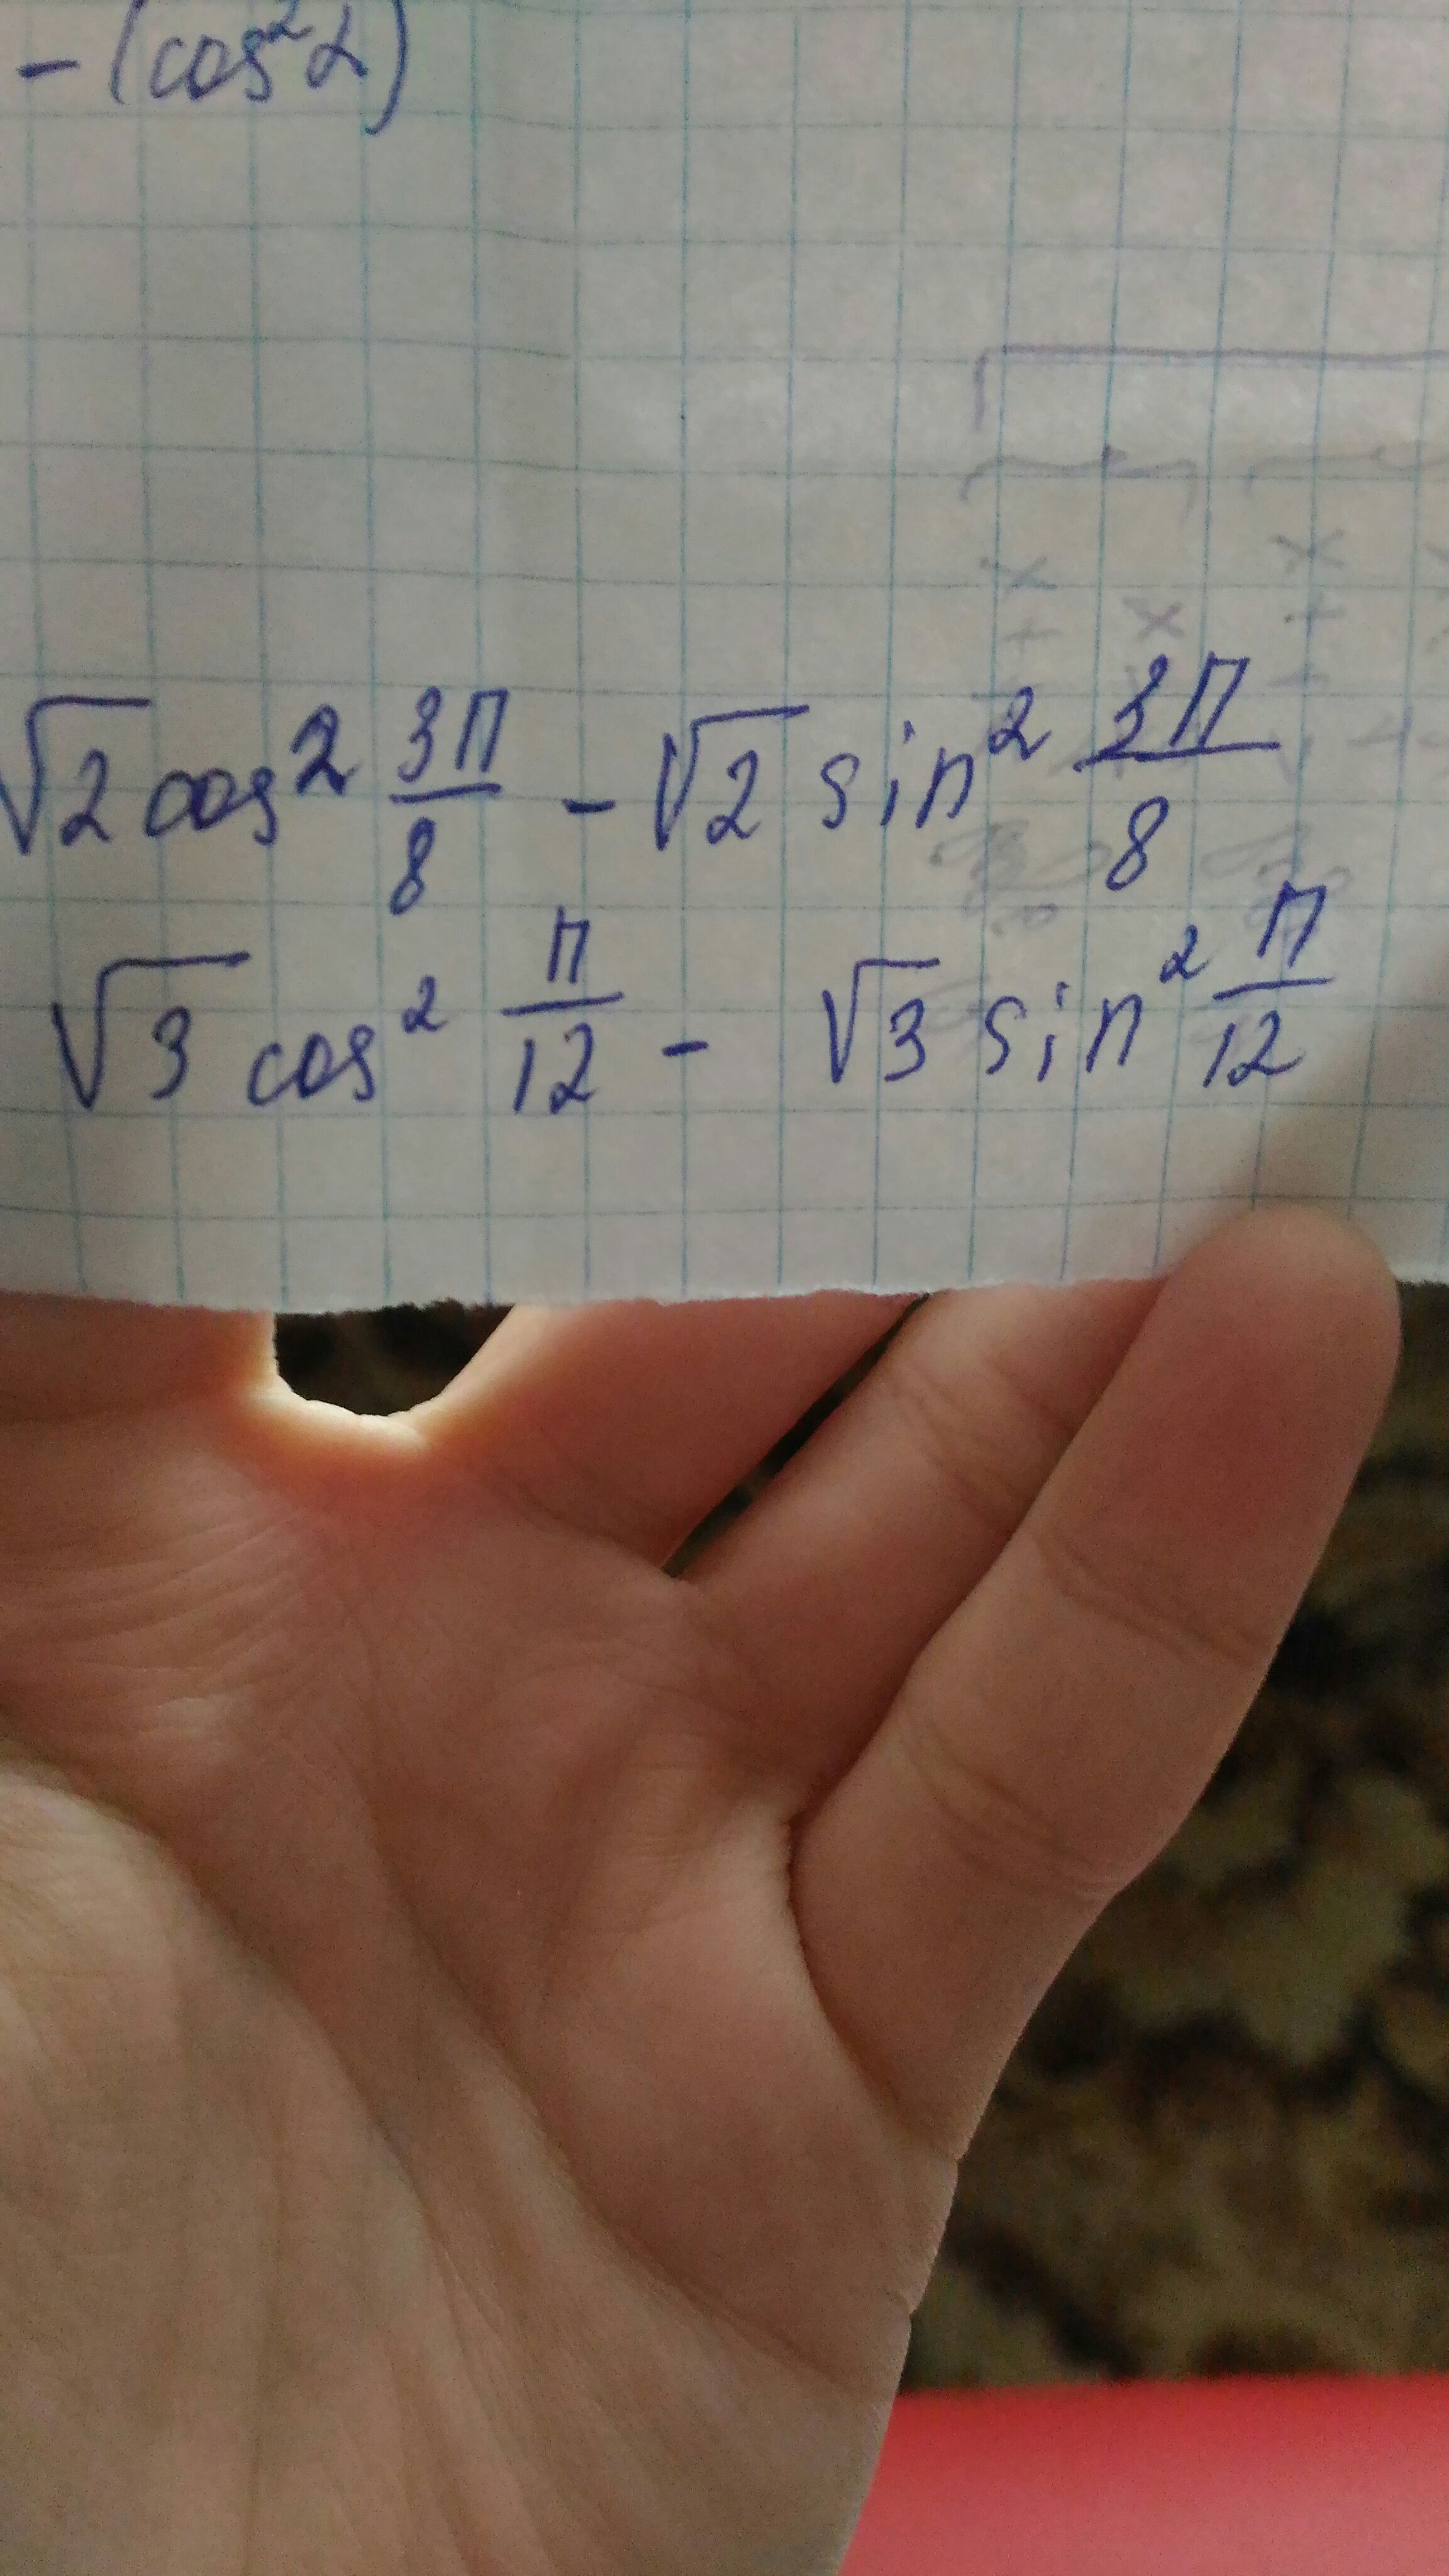 - (cos²α)
√2 cos² 3π/8 - √2 sin² 3π/8
√3 cos² π/12 - √3 sin² π/12